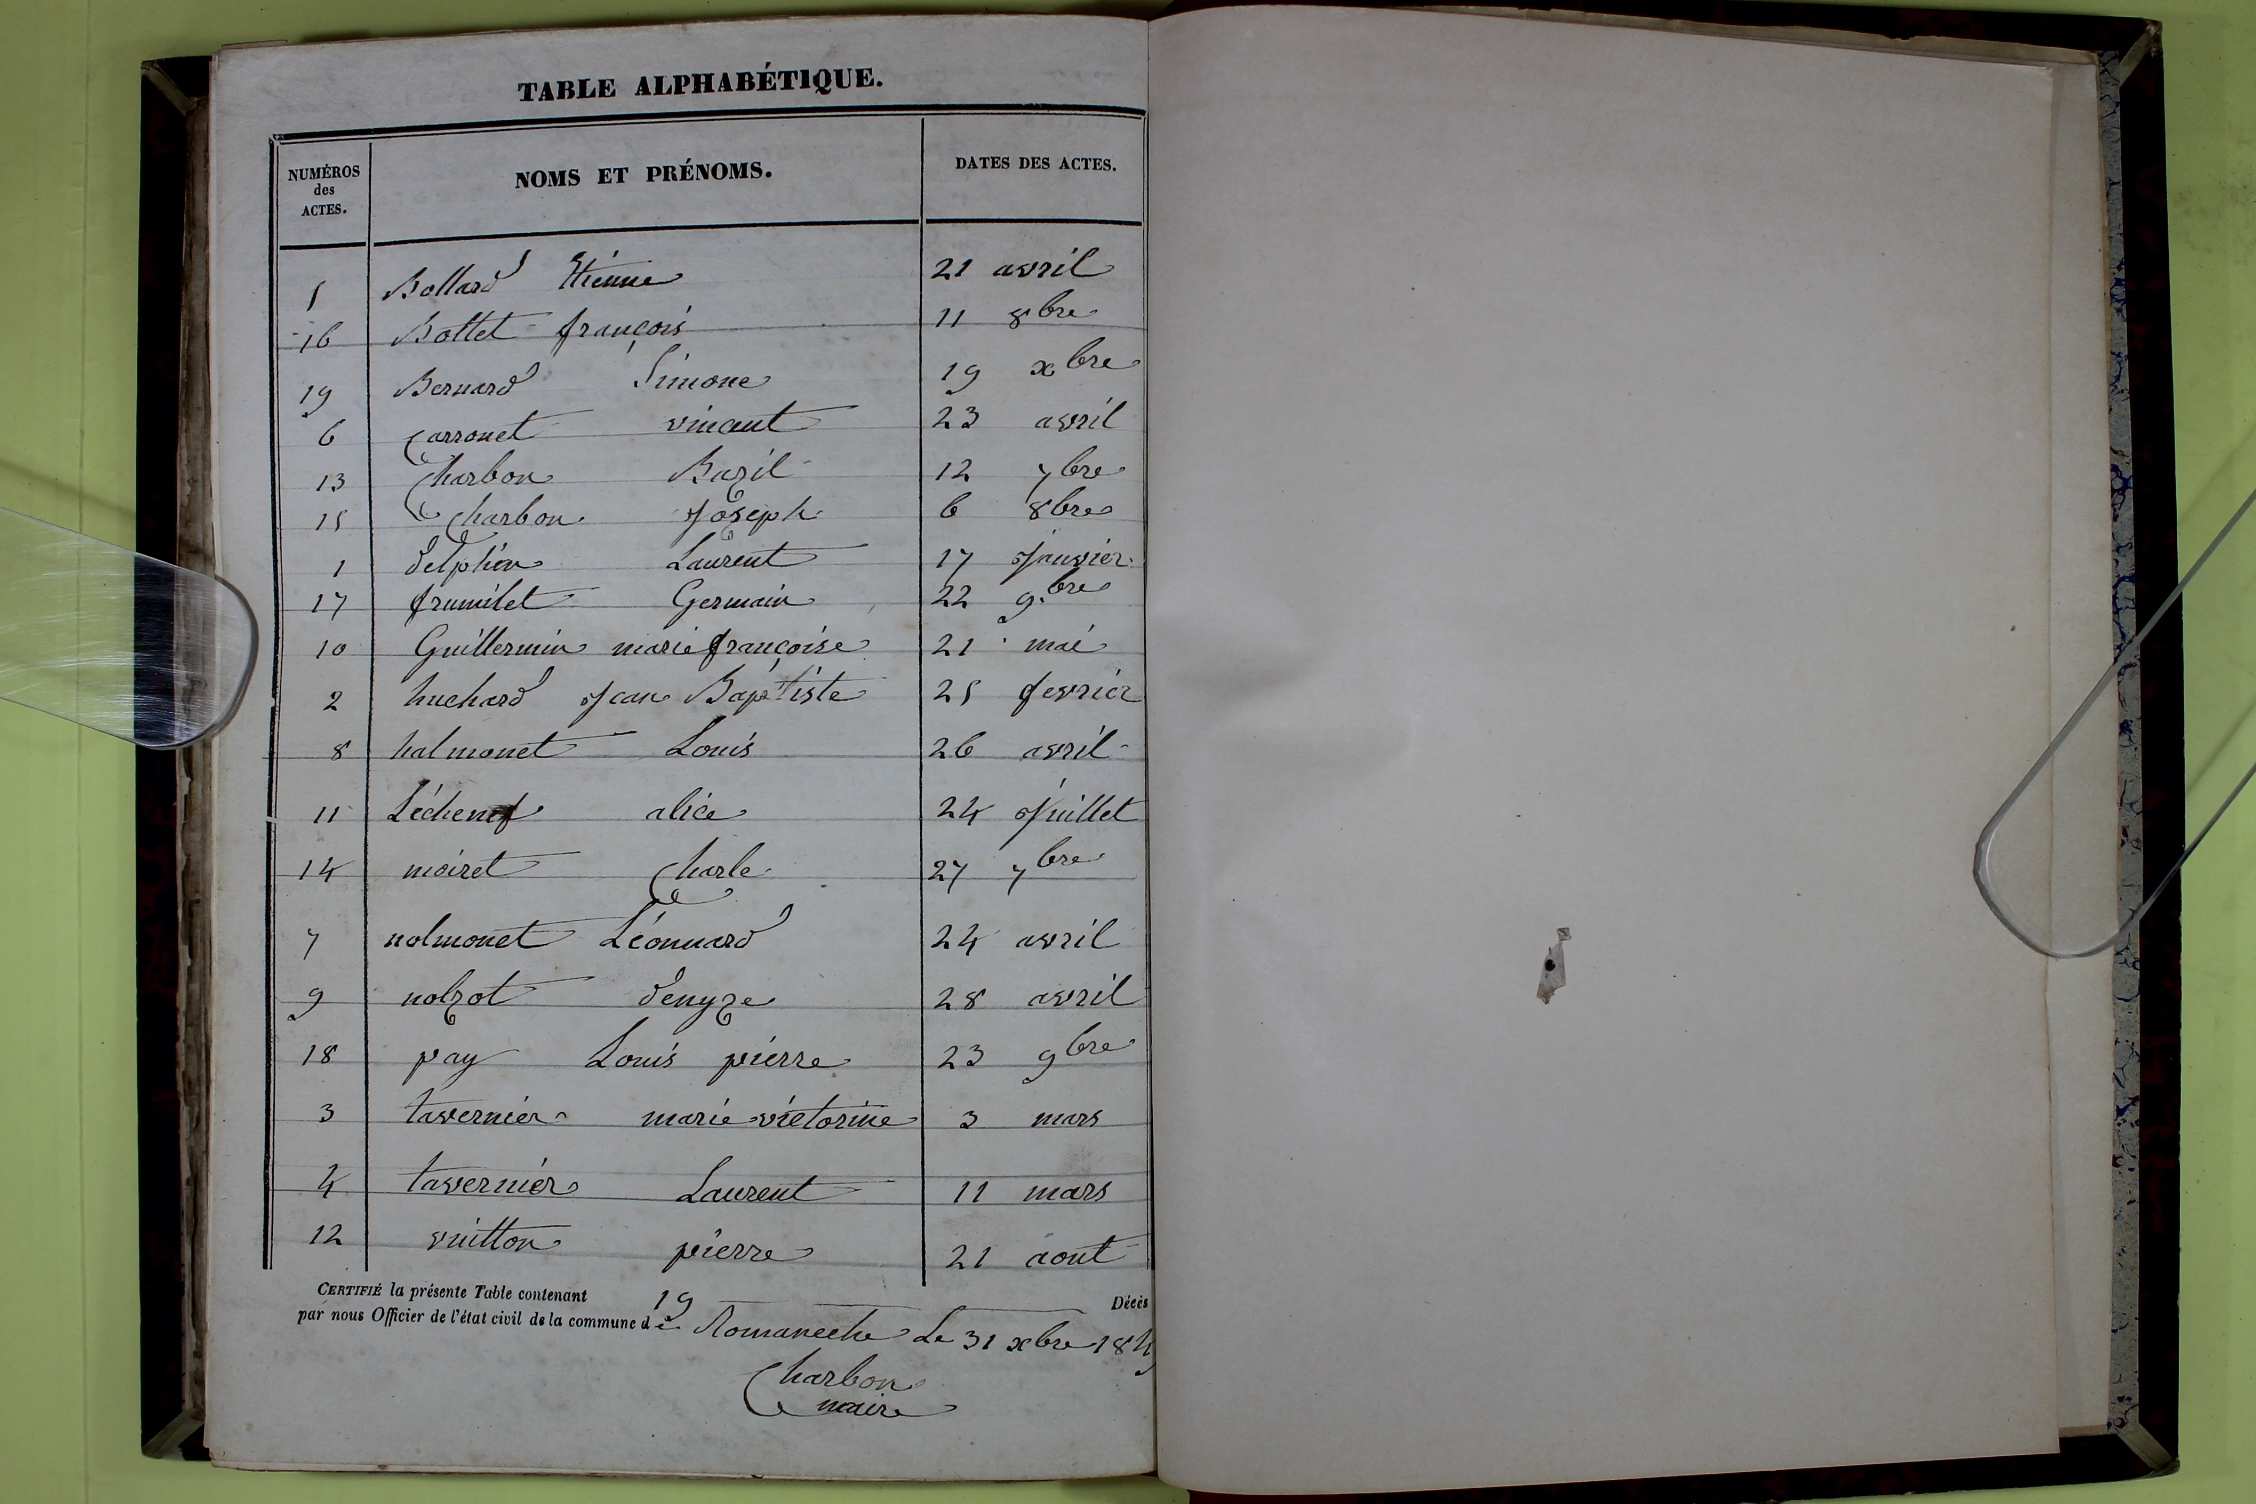 TABLE ALPHABÉTIQUE.
NUMÉROS des ACTES. NOMS ET PRÉNOMS. DATES DES ACTES.
5 Bollard Etienne 21 avril
16 Bottet françois 11 8bre
19 Bernard Simone 19 xbre
6 Carronet vincent 23 avril
13 Charbon Bazil 12 7bre
15 Charbon Joseph 6 8bre
1 delphin Laurent 17 Janvier
17 frumilet Germain 22 9.bre
10 Guillermin marie françoise 21 mai
2 huchard Jean Baptiste 25 fevrier
8 halmonet Louis 26 avril
11 alice 24 Juillet
14 moiret Charle 27 7bre
7 nolmonet Léonnard 24 avril
9 nolzot denyze 28 avril
18 pay Louis pierre 23 9bre
3 tavernier marie victorine 3 mars
4 tavernier Laurent 11 mars
12 vuitton pierre 21 aout
CERTIFIÉ la présente Table contenant 19 Décès
par nous Officier de l'état civil de la commune de Romaneche Le 31 xbre
Charbon
maire